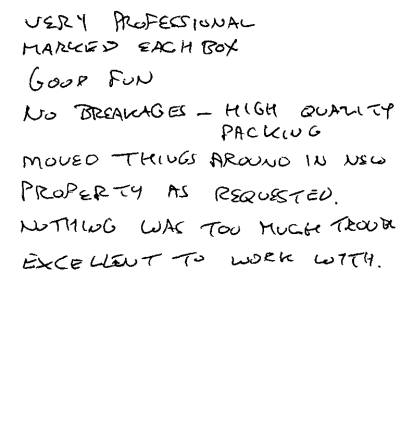 VERY PROFESSIONAL
MARKED EACH BOX
GOOD FUN
NO BREAKAGES - HIGH QUALITY
PACKING
MOVED THINGS AROUND IN NEW
PROPERTY AS REQUESTED.
NOTHING WAS TOO MUCH TROUB
EXCELLENT TO WORK WITH.